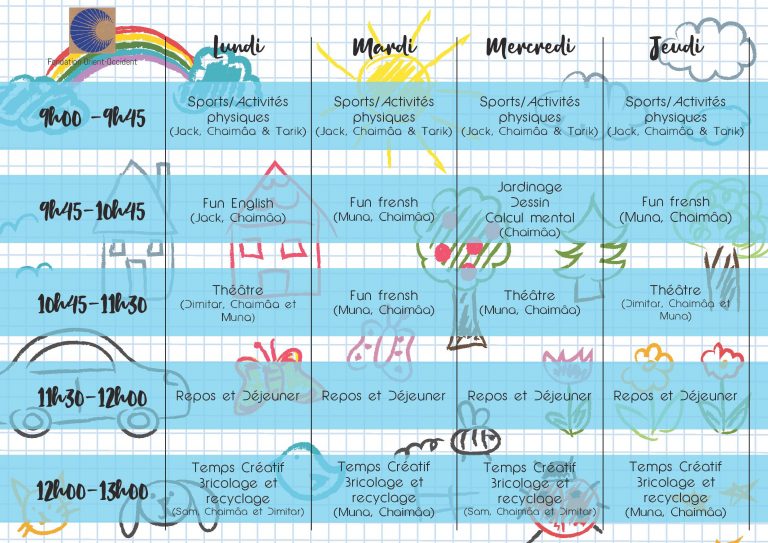 Fondation Orient-Occident
Lundi Mardi Mercredi Jeudi
9h00 -9h45
Sports/Activités physiques (Jack, Chaimâa & Tarik)
Sports/Activités physiques (Jack, Chaimâa & Tarik)
Sports/Activités physiques (Jack, Chaimâa & Tarik)
Sports/Activités physiques (Jack, Chaimâa & Tarik)
9h45-10h45
Fun English (Jack, Chaimâa)
Fun frensh (Muna, Chaimâa)
Jardinage Dessin Calcul mental (Chaimâa)
Fun frensh (Muna, Chaimâa)
10h45-11h30
Théâtre (Dimitar, Chaimâa et Muna)
Fun frensh (Muna, Chaimâa)
Théâtre (Muna, Chaimâa)
Théâtre (Dimitar, Chaimâa et Muna)
11h30-12h00
Repos et Déjeuner
Repos et Déjeuner
Repos et Déjeuner
Repos et Déjeuner
12h00-13h00
Temps Créatif Bricolage et recyclage (Sam, Chaimâa et Dimitar)
Temps Créatif Bricolage et recyclage (Muna, Chaimâa)
Temps Créatif Bricolage et recyclage (Sam, Chaimâa et Dimitar)
Temps Créatif Bricolage et recyclage (Muna, Chaimâa)